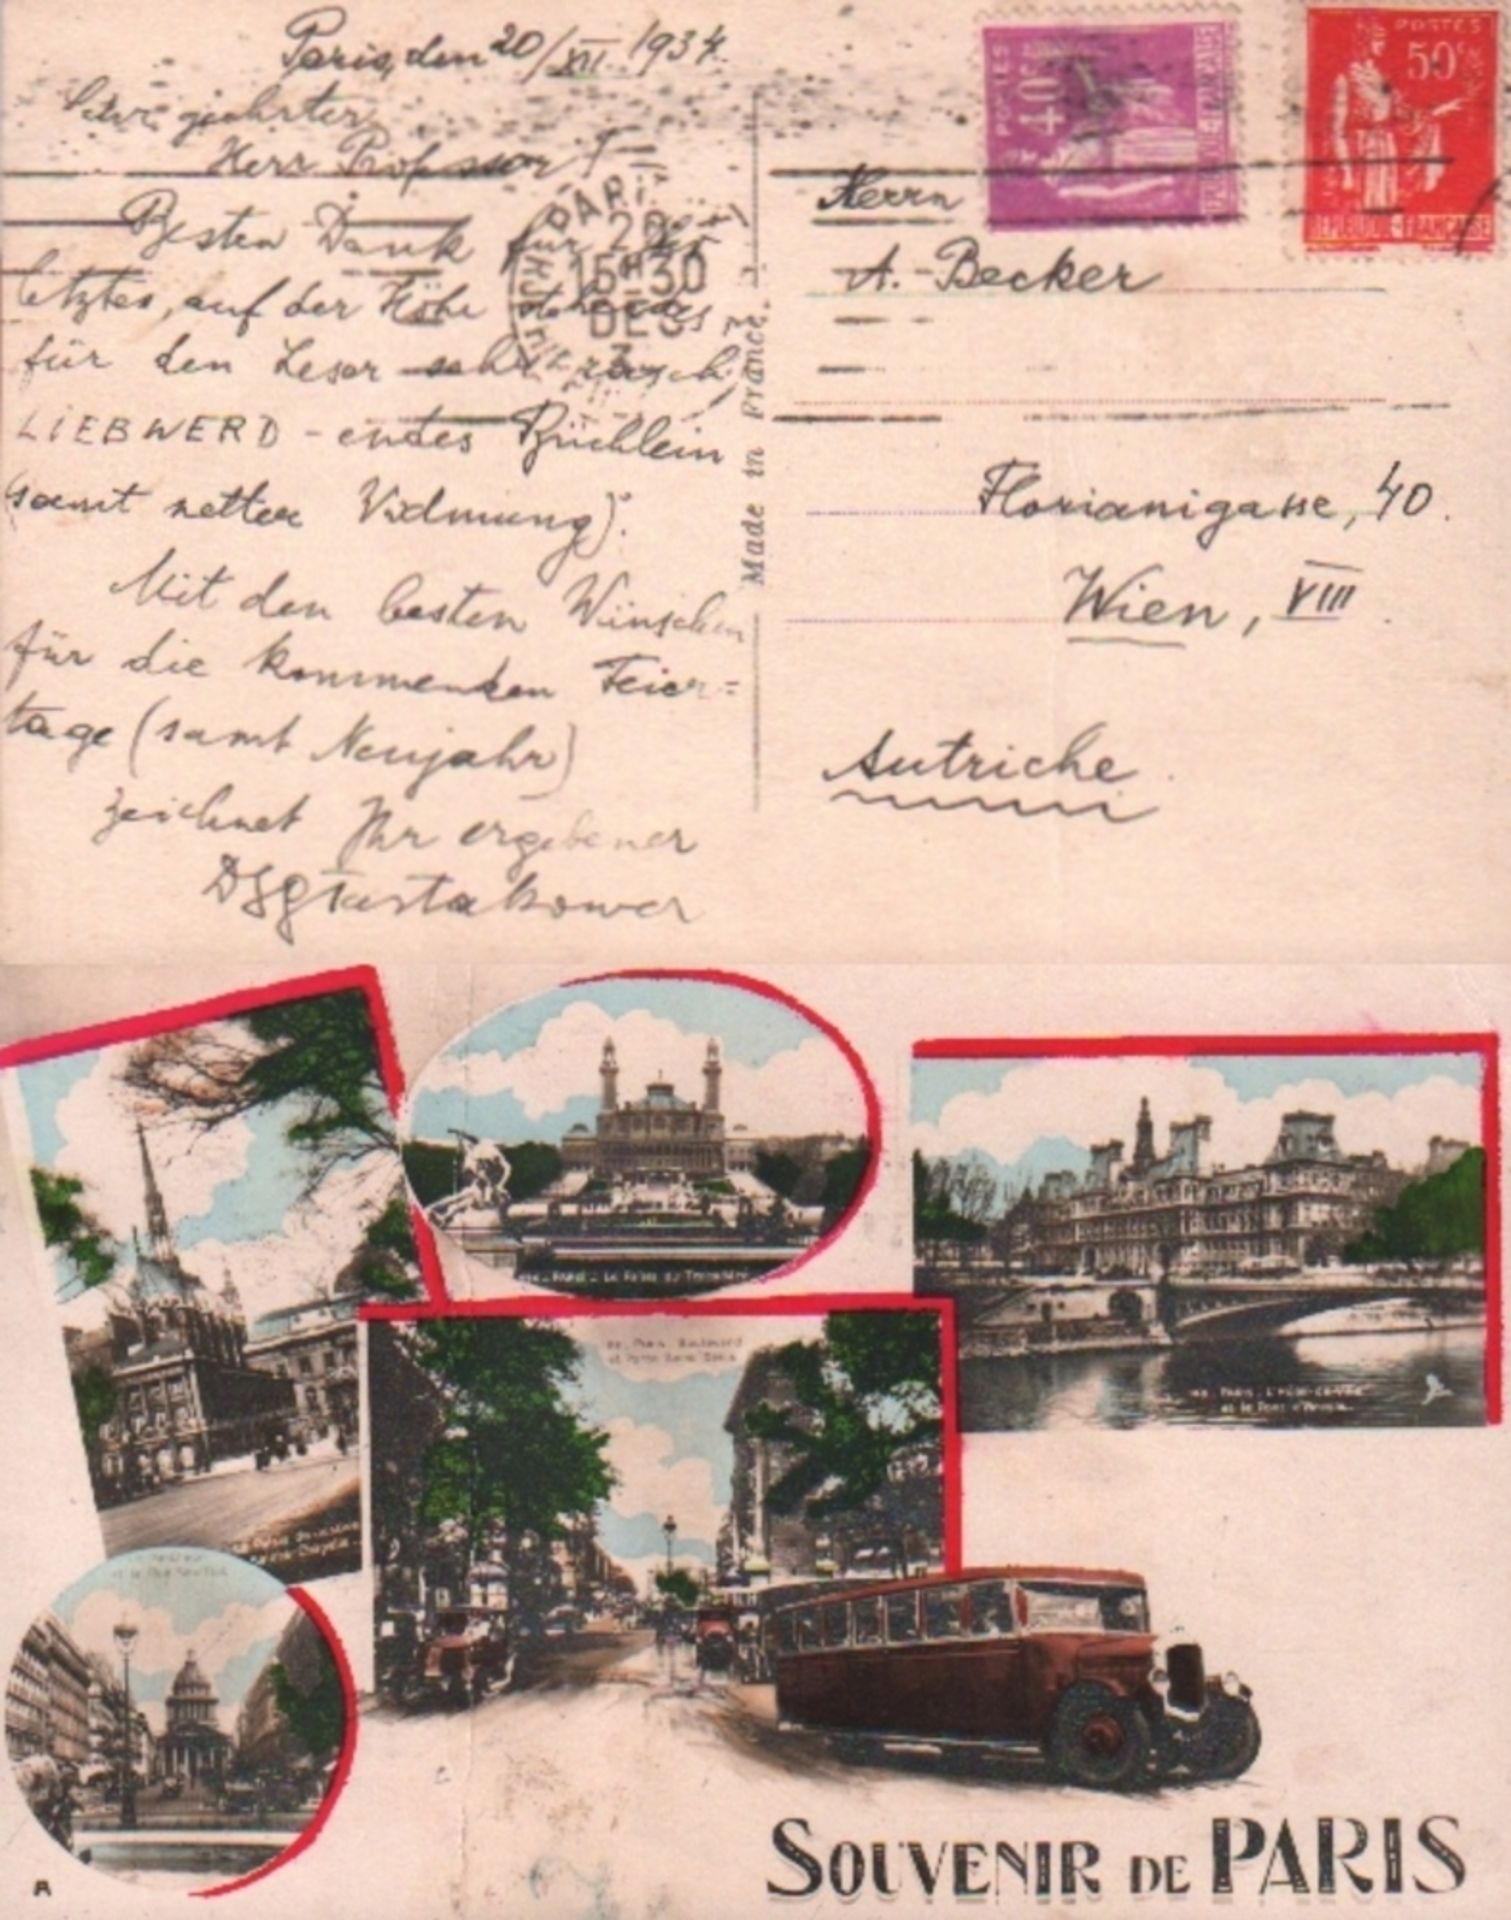 Paris, den 20/XII. 1934.
Sehr geehrter
Herr Professor!
Besten Dank für Ihr
letztes, auf der Höhe stehendes
für den Leser sehr rasch
LIEBWERD-endes Büchlein
(samt netter Widmung).
Mit den besten Wünschen
für die kommenden Feier=
tage (samt Neujahr)
zeichnet Ihr ergebener
Tartakower
PARIS
20
15H30
DEC
Made in France.
POSTES
40c
POSTES
50c
REPUBLIQUE FRANÇAISE
Herrn
A. Becker
Florianigasse, 40.
Wien, VIII.
Autriche
PARIS - Le Palais du Trocadéro
PARIS - L'Hôtel de Ville
et le Pont d'Arcole
Paris. Boulevard
et Porte Saint-Denis
A
SOUVENIR DE PARIS